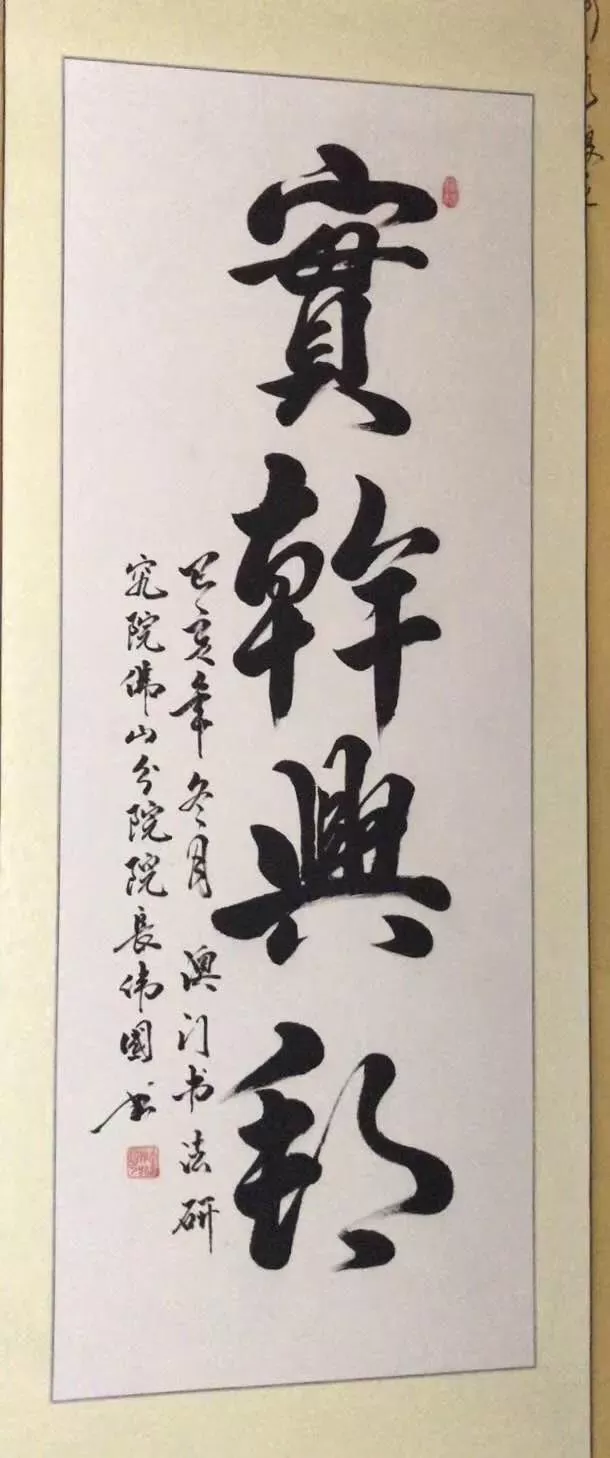 實幹興邦
己亥年冬月 澳门书法研
究院佛山分院院长伟國书